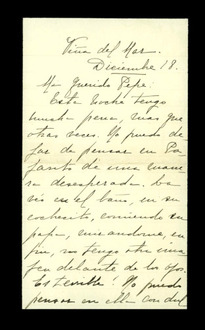 Viña del Mar.
Diciembre 18.
Mi Querido Pepe:
Esta noche tengo
mucha pena, mas que
otras veces. No puedo de
jar de pensar en
de una mane
ra desesperada. La
veo en el baño, en su
cochesito, comiendo su
papa, en
fin, no tengo otra ima
jen delante de los ojos.
No puedo
pensar en ella con dul